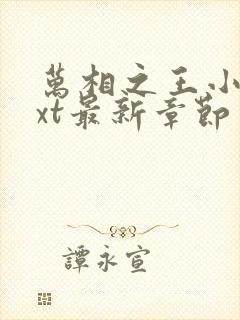 萬相之王小
xt最新章節
譚永宣